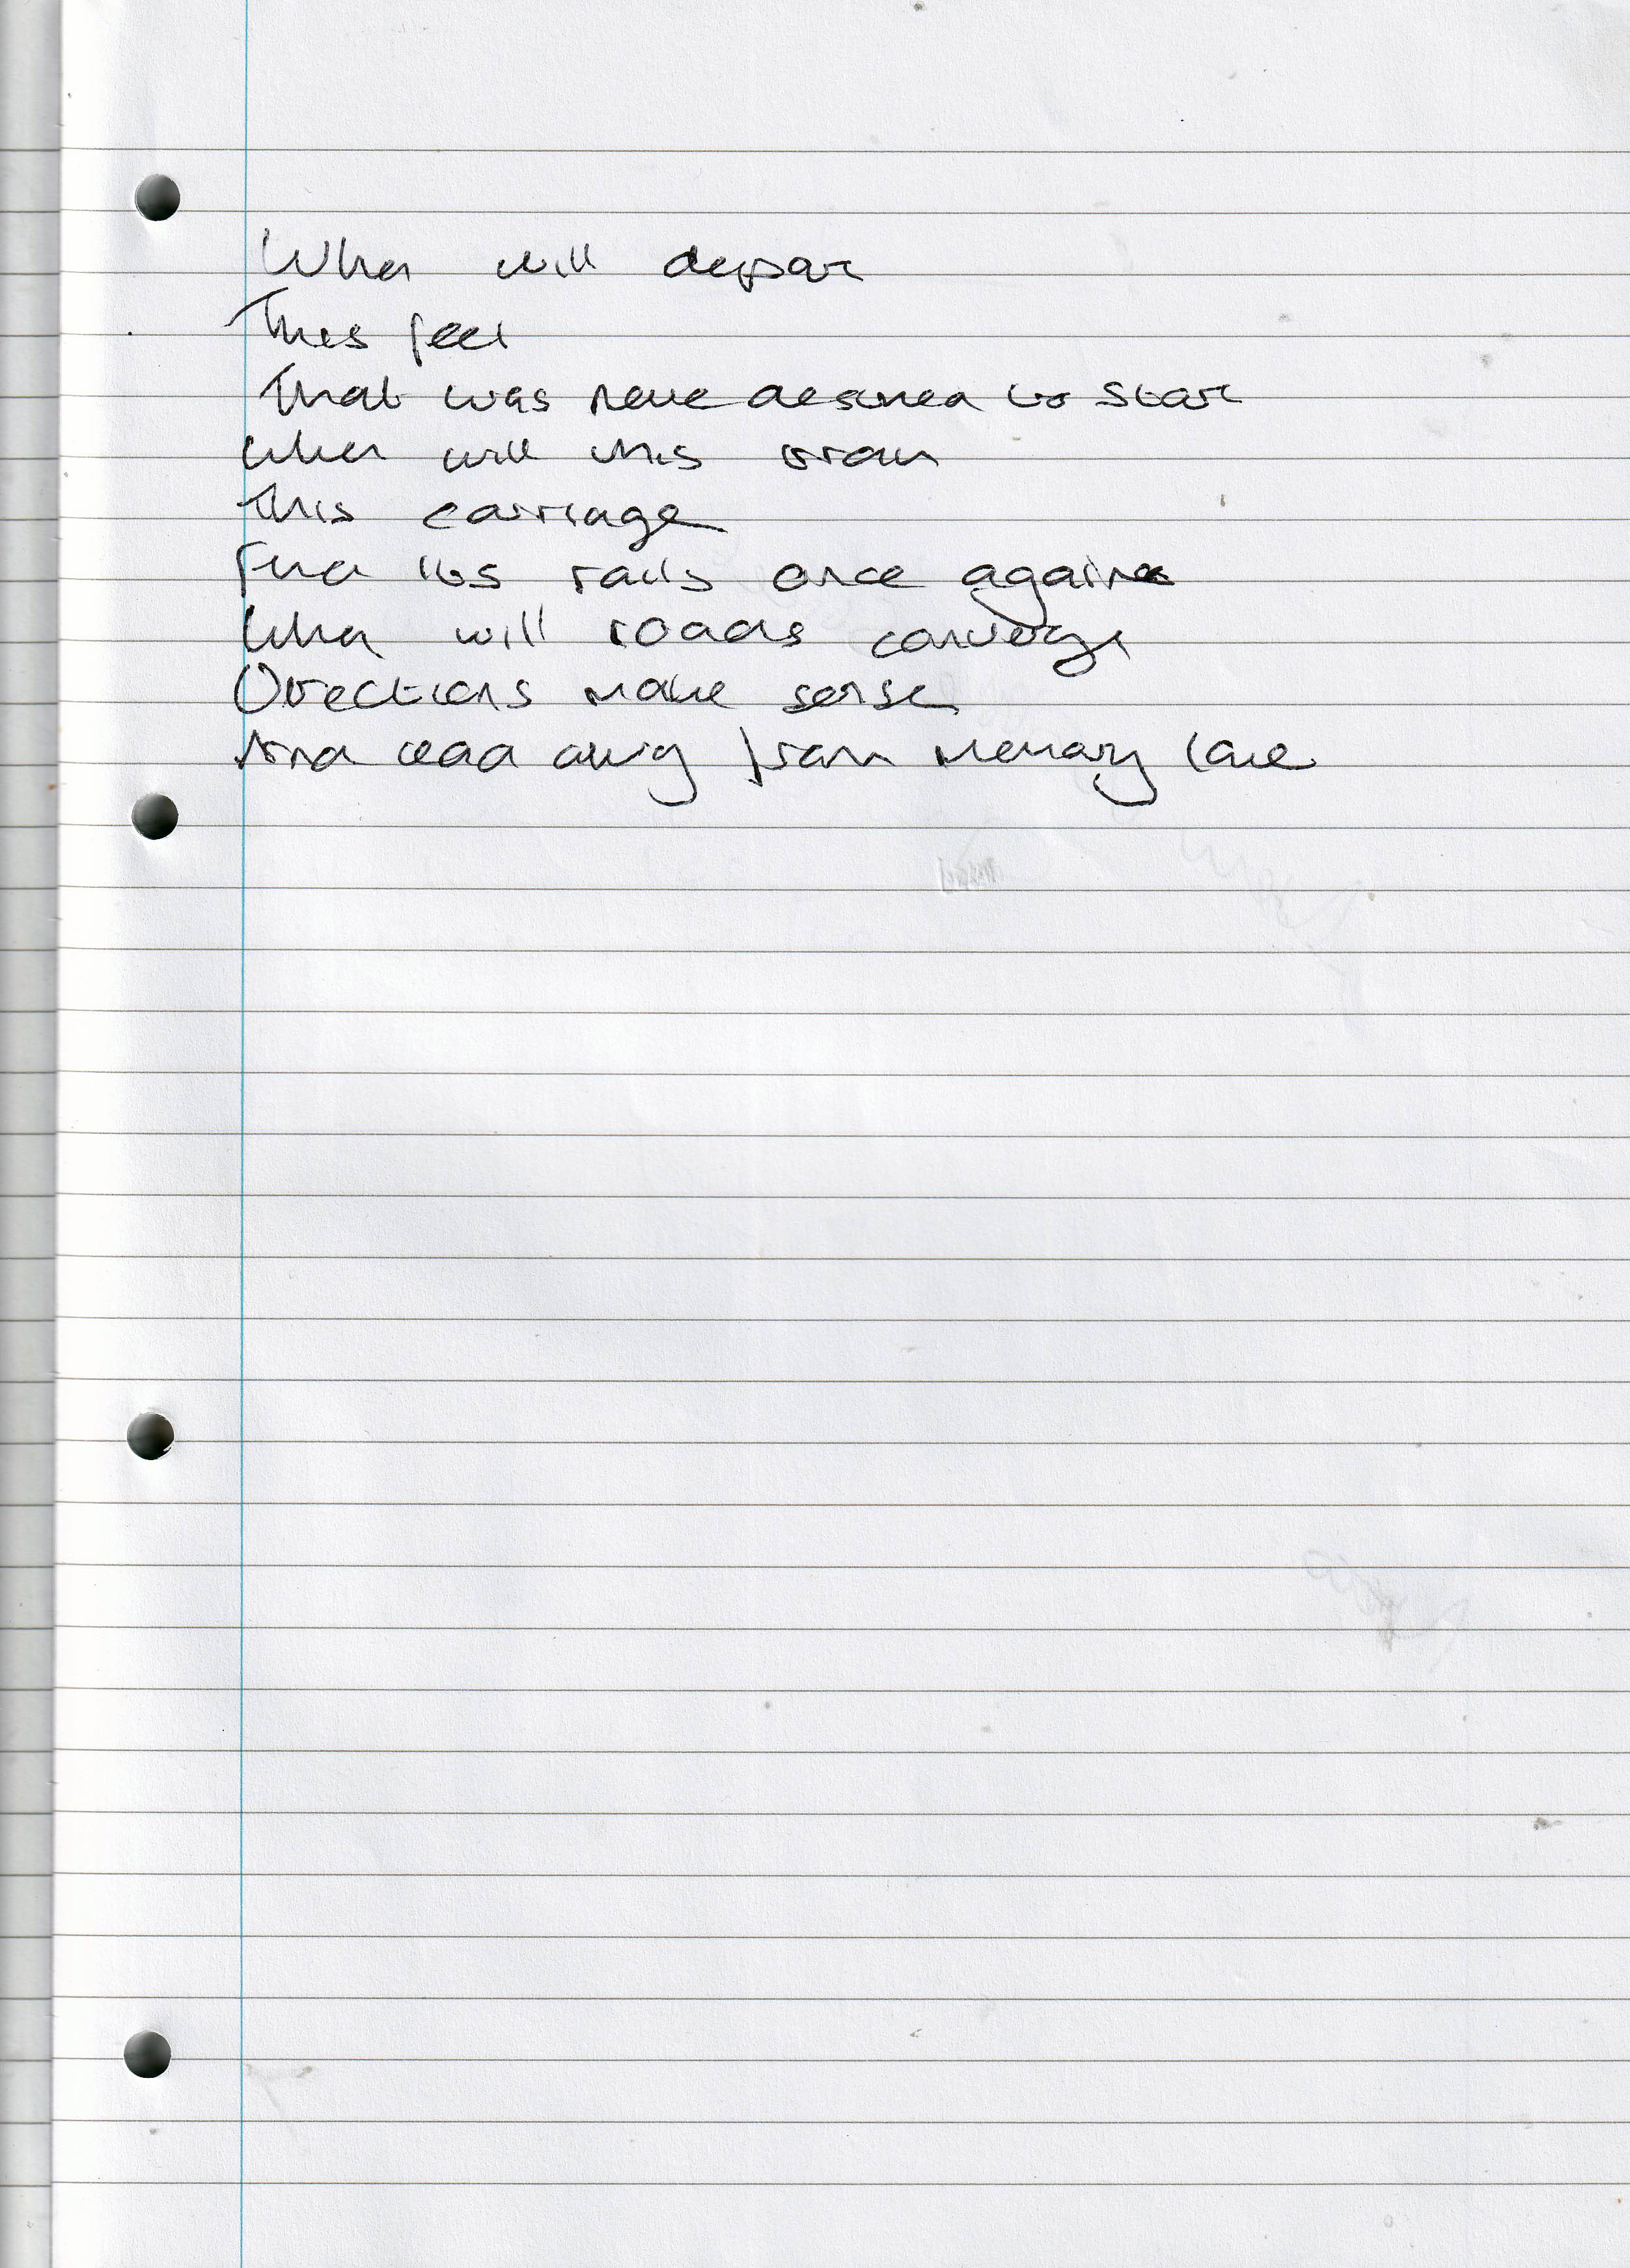 When will depart
This feet
That was never destined to start
When will this train
This carriage
Find its rails once again
When will roads converge
Directions make sense
And lead away from memory lane